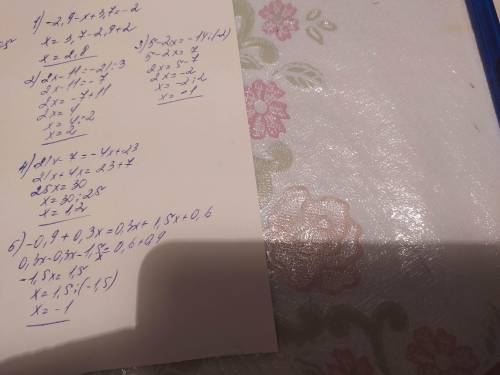 1) -2,9-x+3,7=-2
x=3,7-2,9+2
x=2,8
2) 2x-11=-21:3
2x-11=-7
2x=-7+11
2x=4
x=4:2
x=2
3) 5-2x=-14:(-2)
5-2x=7
2x=5-7
2x=-2
x=-2:2
x=-1
4) 21x-7=-4x+23
21x+4x=23+7
25x=30
x=30:25
x=1,2
5) -0,9+0,3x=0,3x+1,5x+0,6
0,3x-0,3x-1,5x=0,6+0,9
-1,5x=1,5
x=1,5:(-1,5)
x=-1